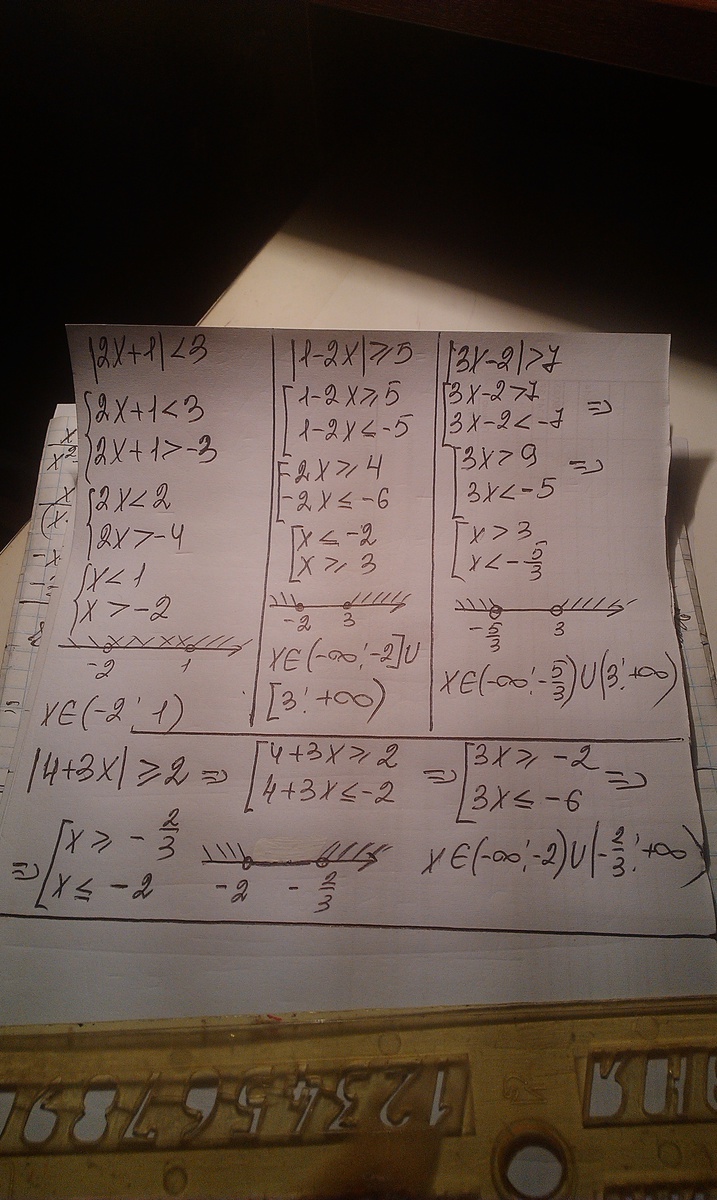 |2x+1|<3
{2x+1<3
{2x+1>-3
{2x<2
{2x>-4
{x<1
{x>-2
-2 1
x∈(-2; 1)
|1-2x|⩾5
[1-2x⩾5
[1-2x≤-5
[-2x⩾4
[-2x≤-6
[x≤-2
[x⩾3
-2 3
x∈(-∞;-2]∪
[3;+∞)
|3x-2|>7
[3x-2>7
[3x-2<-7 =>
[3x>9
[3x<-5 =>
[x>3
[x<-5/3
-5/3 3
x∈(-∞;-5/3)∪(3;+∞)
|4+3x|⩾2 => [4+3x⩾2 => [3x⩾-2 =>
[4+3x≤-2 [3x≤-6
=> [x⩾-2/3
[x≤-2
-2 -2/3
x∈(-∞;-2)∪(-2/3;+∞)
1234567890